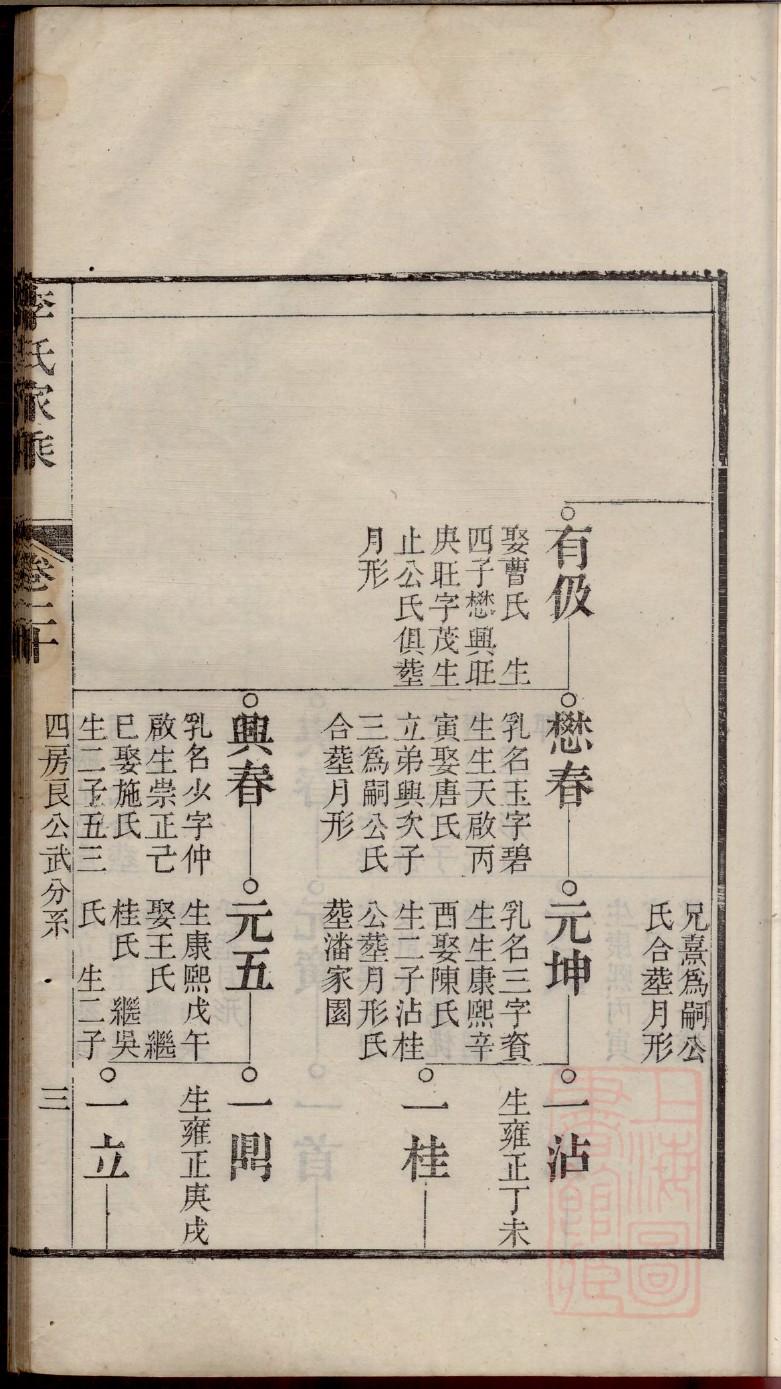 兄熹爲嗣公
氏合塟月形
有伋
娶曹氏　生
四子懋興旺
庚旺字茂生
止公氏俱塟
月形
懋春
乳名玉字碧
生生天啟丙
寅娶唐氏
立弟興次子
三爲嗣公氏
合塟月形
元坤
乳名三字資
生生康熙辛
酉娶陳氏
生二子沾桂
公塟月形氏
塟潘家園
一沾
生雍正丁未
一桂
興春
乳名少字仲
啟生崇正己
巳娶施氏
生二子五三
元五
生康熙戊午
娶王氏　繼
桂氏　繼吳
氏　生二子
一閗
生雍正庚戌
一立
四房良公武分系
三
李氏家乘
卷二十
上海圖書館藏